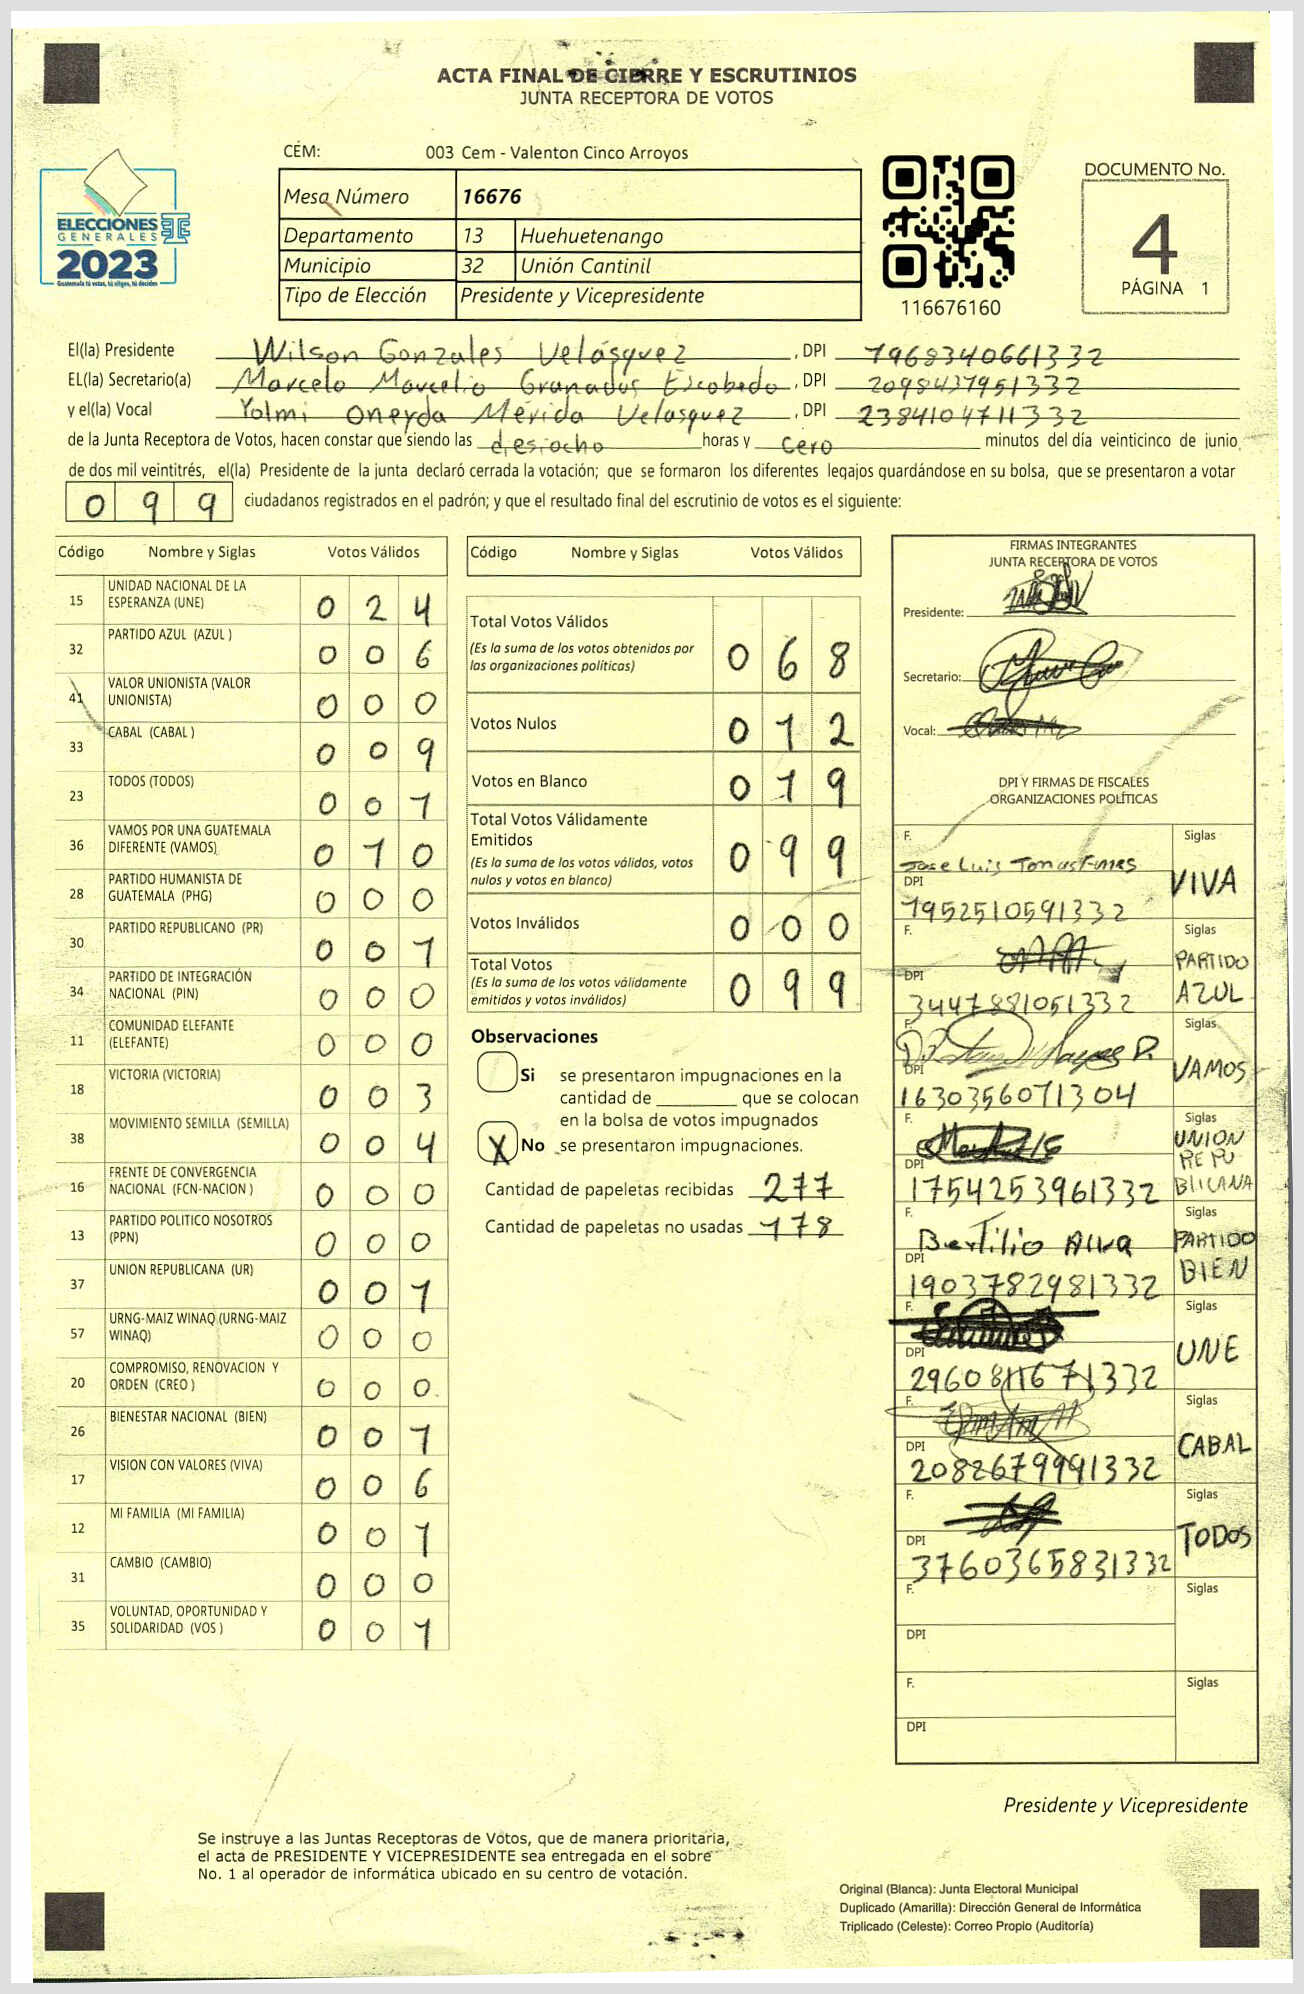 ACTA FINAL DE CIERRE Y ESCRUTINIOS
JUNTA RECEPTORA DE VOTOS
CEM: 003 Cem - Valenton Cinco Arroyos
ELECCIONES
GENERALES
2023
Guatemala tú votas, tú eliges, tú decides
Mesa Número 16676
Departamento 13 Huehuetenango
Municipio 32 Unión Cantinil
Tipo de Elección Presidente y Vicepresidente
116676160
DOCUMENTO No.
4
PÁGINA 1
El(la) Presidente Wilson Gonzales Velásquez , DPI 7968340661332
EL(la) Secretario(a) Marcelo Marcelio Granados Escobedo , DPI 2098437951332
y el(la) Vocal Yolmi Oneyda Mérida Velasquez , DPI 2384104711332
de la Junta Receptora de Votos, hacen constar que siendo las diesiocho horas y cero minutos del día veinticinco de junio
de dos mil veintitrés, el(la) Presidente de la junta declaró cerrada la votación; que se formaron los diferentes legajos guardándose en su bolsa, que se presentaron a votar
099 ciudadanos registrados en el padrón; y que el resultado final del escrutinio de votos es el siguiente:
Código Nombre y Siglas Votos Válidos
15 UNIDAD NACIONAL DE LA ESPERANZA (UNE) 024
32 PARTIDO AZUL (AZUL ) 006
41 VALOR UNIONISTA (VALOR UNIONISTA) 000
33 CABAL (CABAL ) 009
23 TODOS (TODOS) 001
36 VAMOS POR UNA GUATEMALA DIFERENTE (VAMOS) 010
28 PARTIDO HUMANISTA DE GUATEMALA (PHG) 000
30 PARTIDO REPUBLICANO (PR) 001
34 PARTIDO DE INTEGRACIÓN NACIONAL (PIN) 000
11 COMUNIDAD ELEFANTE (ELEFANTE) 000
18 VICTORIA (VICTORIA) 003
38 MOVIMIENTO SEMILLA (SEMILLA) 004
16 FRENTE DE CONVERGENCIA NACIONAL (FCN-NACION ) 000
13 PARTIDO POLITICO NOSOTROS (PPN) 000
37 UNION REPUBLICANA (UR) 001
57 URNG-MAIZ WINAQ (URNG-MAIZ WINAQ) 000
20 COMPROMISO, RENOVACION Y ORDEN (CREO ) 000
26 BIENESTAR NACIONAL (BIEN) 001
17 VISION CON VALORES (VIVA) 006
12 MI FAMILIA (MI FAMILIA) 001
31 CAMBIO (CAMBIO) 000
35 VOLUNTAD, OPORTUNIDAD Y SOLIDARIDAD (VOS ) 001
Código Nombre y Siglas Votos Válidos
Total Votos Válidos 068
(Es la suma de los votos obtenidos por
las organizaciones políticas)
Votos Nulos 012
Votos en Blanco 019
Total Votos Válidamente
Emitidos 099
(Es la suma de los votos válidos, votos
nulos y votos en blanco)
Votos Inválidos 000
Total Votos 099
(Es la suma de los votos válidamente
emitidos y votos inválidos)
Observaciones
Si se presentaron impugnaciones en la
cantidad de ________ que se colocan
en la bolsa de votos impugnados
X No se presentaron impugnaciones.
Cantidad de papeletas recibidas 277
Cantidad de papeletas no usadas 178
FIRMAS INTEGRANTES
JUNTA RECEPTORA DE VOTOS
Presidente:
Secretario:
Vocal:
DPI Y FIRMAS DE FISCALES
ORGANIZACIONES POLÍTICAS
F. Jose Luis Tomas Siglas VIVA
DPI 7952510591332
F. Siglas PARTIDO AZUL
DPI 3447881051332
F. Siglas VAMOS
DPI 1630356071304
F. Siglas UNION REPUBLICANA
DPI 1754253961332
F. Bertilio Alva Siglas PARTIDO BIEN
DPI 1903782981332
F. Siglas UNE
DPI 2960811671332
F. Siglas CABAL
DPI 2082679991332
F. Siglas TODOS
DPI 3760365831332
F. Siglas
DPI
F. Siglas
DPI
Presidente y Vicepresidente
Se instruye a las Juntas Receptoras de Votos, que de manera prioritaria,
el acta de PRESIDENTE Y VICEPRESIDENTE sea entregada en el sobre
No. 1 al operador de informática ubicado en su centro de votación.
Original (Blanca): Junta Electoral Municipal
Duplicado (Amarilla): Dirección General de Informática
Triplicado (Celeste): Correo Propio (Auditoría)